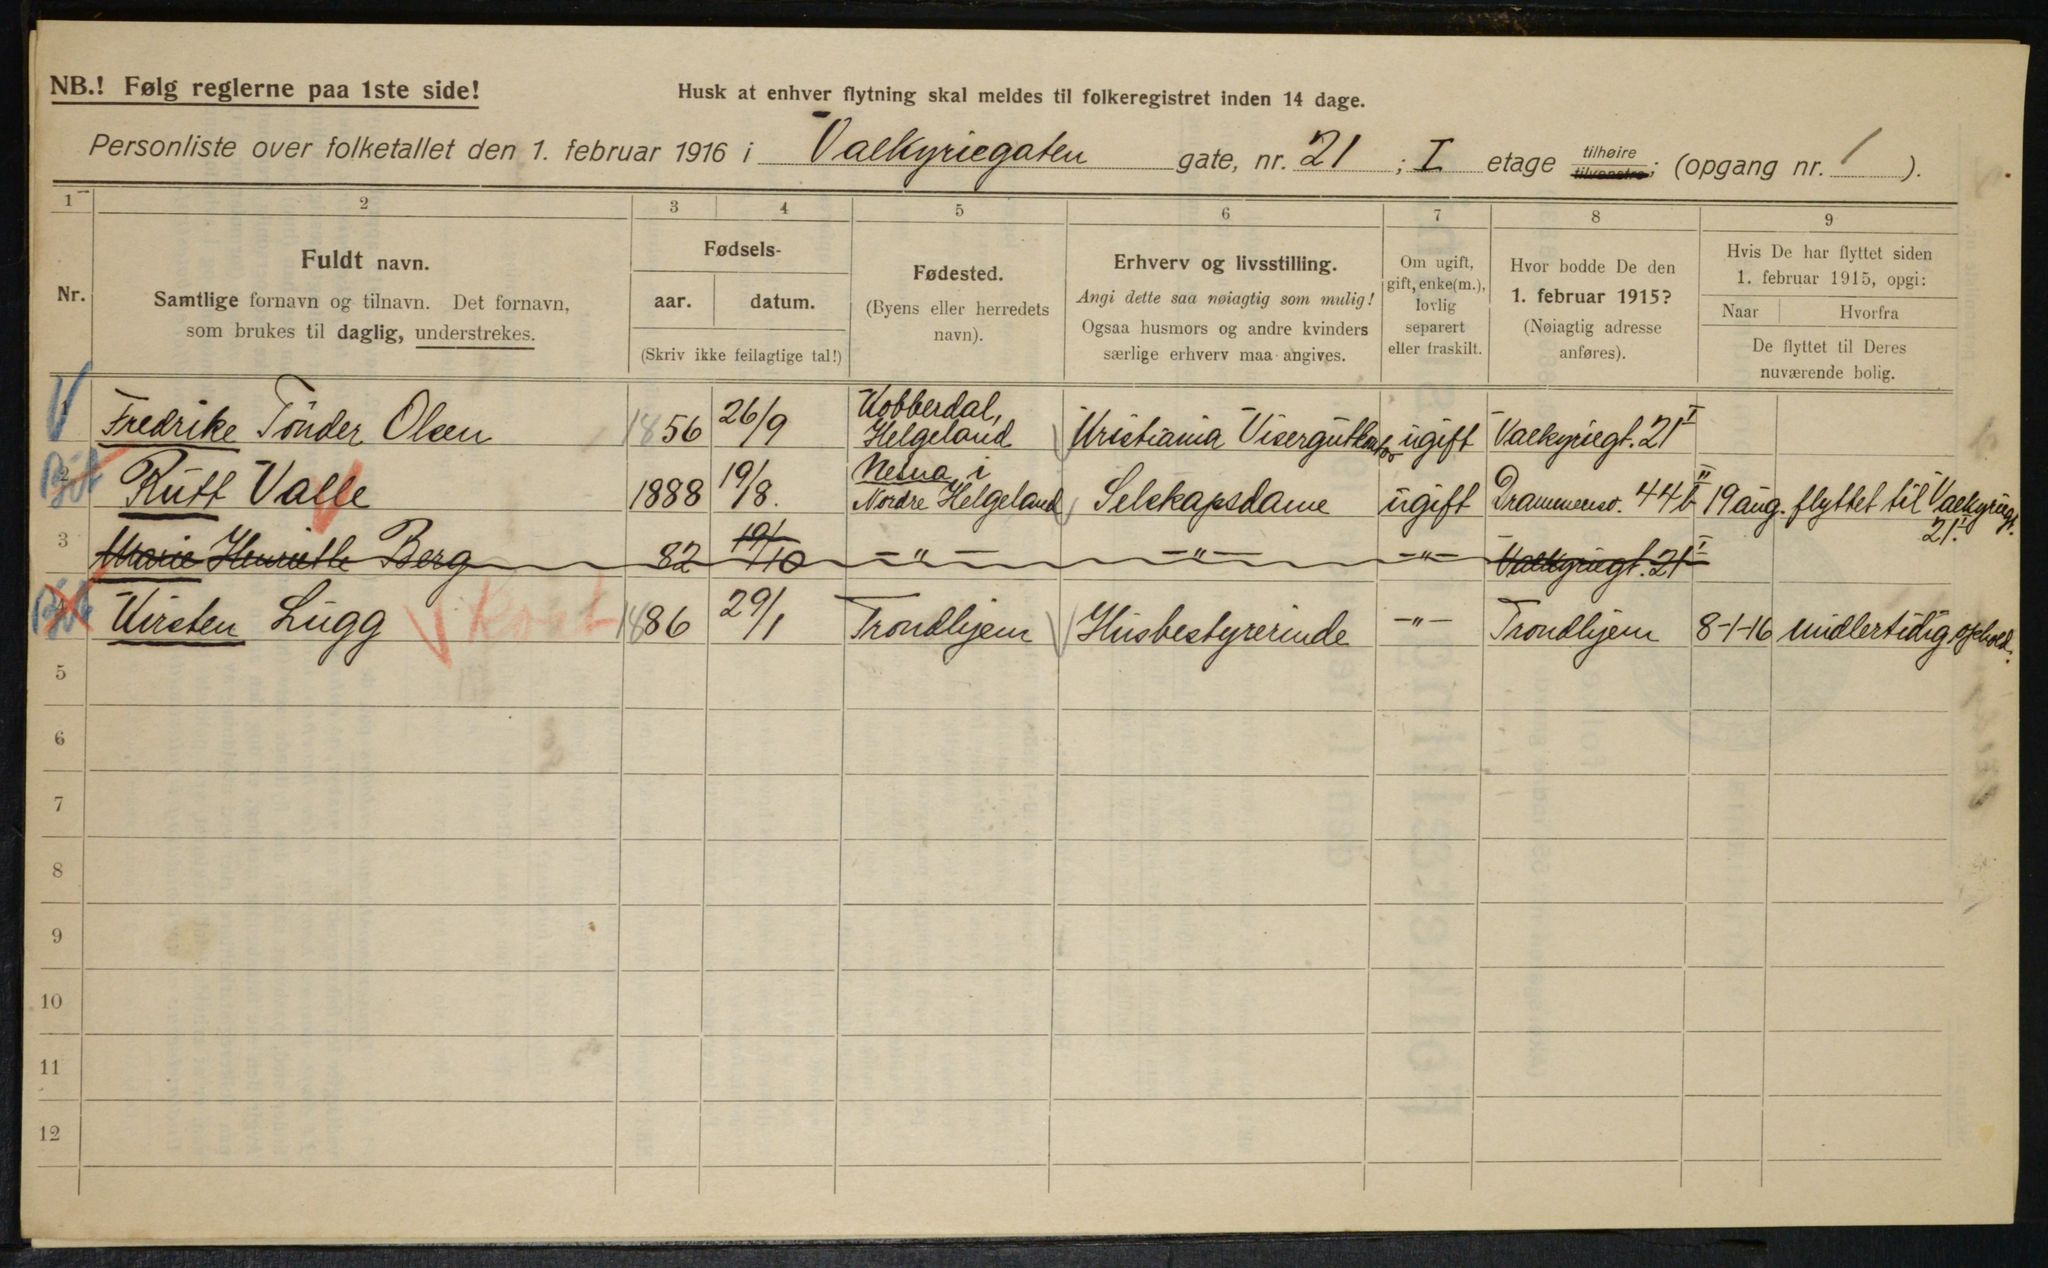 NB.! Følg reglerne paa 1ste side!
Husk at enhver flytning skal meldes til folkeregistret inden 14 dage.
Personliste over folketallet den 1. februar 1916 i Valkyriegaten gate, nr. 21 ; I etage tilhøire tilvenstre; (opgang nr. 1 ).
1 2 3 4 5 6 7 8 9
Nr.
Fuldt navn.
Samtlige fornavn og tilnavn. Det fornavn,
som brukes til daglig, understrekes.
Fødsels-
aar. datum.
(Skriv ikke feilagtige tal!)
Fødested.
(Byens eller herredets
navn).
Erhverv og livsstilling.
Angi dette saa nøiagtig som mulig!
Ogsaa husmors og andre kvinders
særlige erhverv maa angives.
Om ugift,
gift, enke(m.),
lovlig
separert
eller fraskilt.
Hvor bodde De den
1. februar 1915?
(Nøiagtig adresse
anføres).
Hvis De har flyttet siden
1. februar 1915, opgi:
Naar Hvorfra
De flyttet til Deres
nuværende bolig.
1 Fredrike Tönder Olsen 1856 26/9 Kobberdal, Helgeland Kristiania Visergutkontor ugift Valkyriegt. 21 I
2 Rutt Valle 1888 19/8. Nesna i Nordre Helgeland Selskapsdame ugift Drammensv. 44b II 19 aug. flyttet til Valkyriegt. 21 I
3 Marie Henriette Berg 82 19/10 -"- -"- -"- Valkyriegt. 21 I
4 Kirsten Lugg 1886 29/1 Trondhjem Husbestyrerinde -"- Trondhjem 8-1-16 midlertidig ophold.
5
6
7
8
9
10
11
12